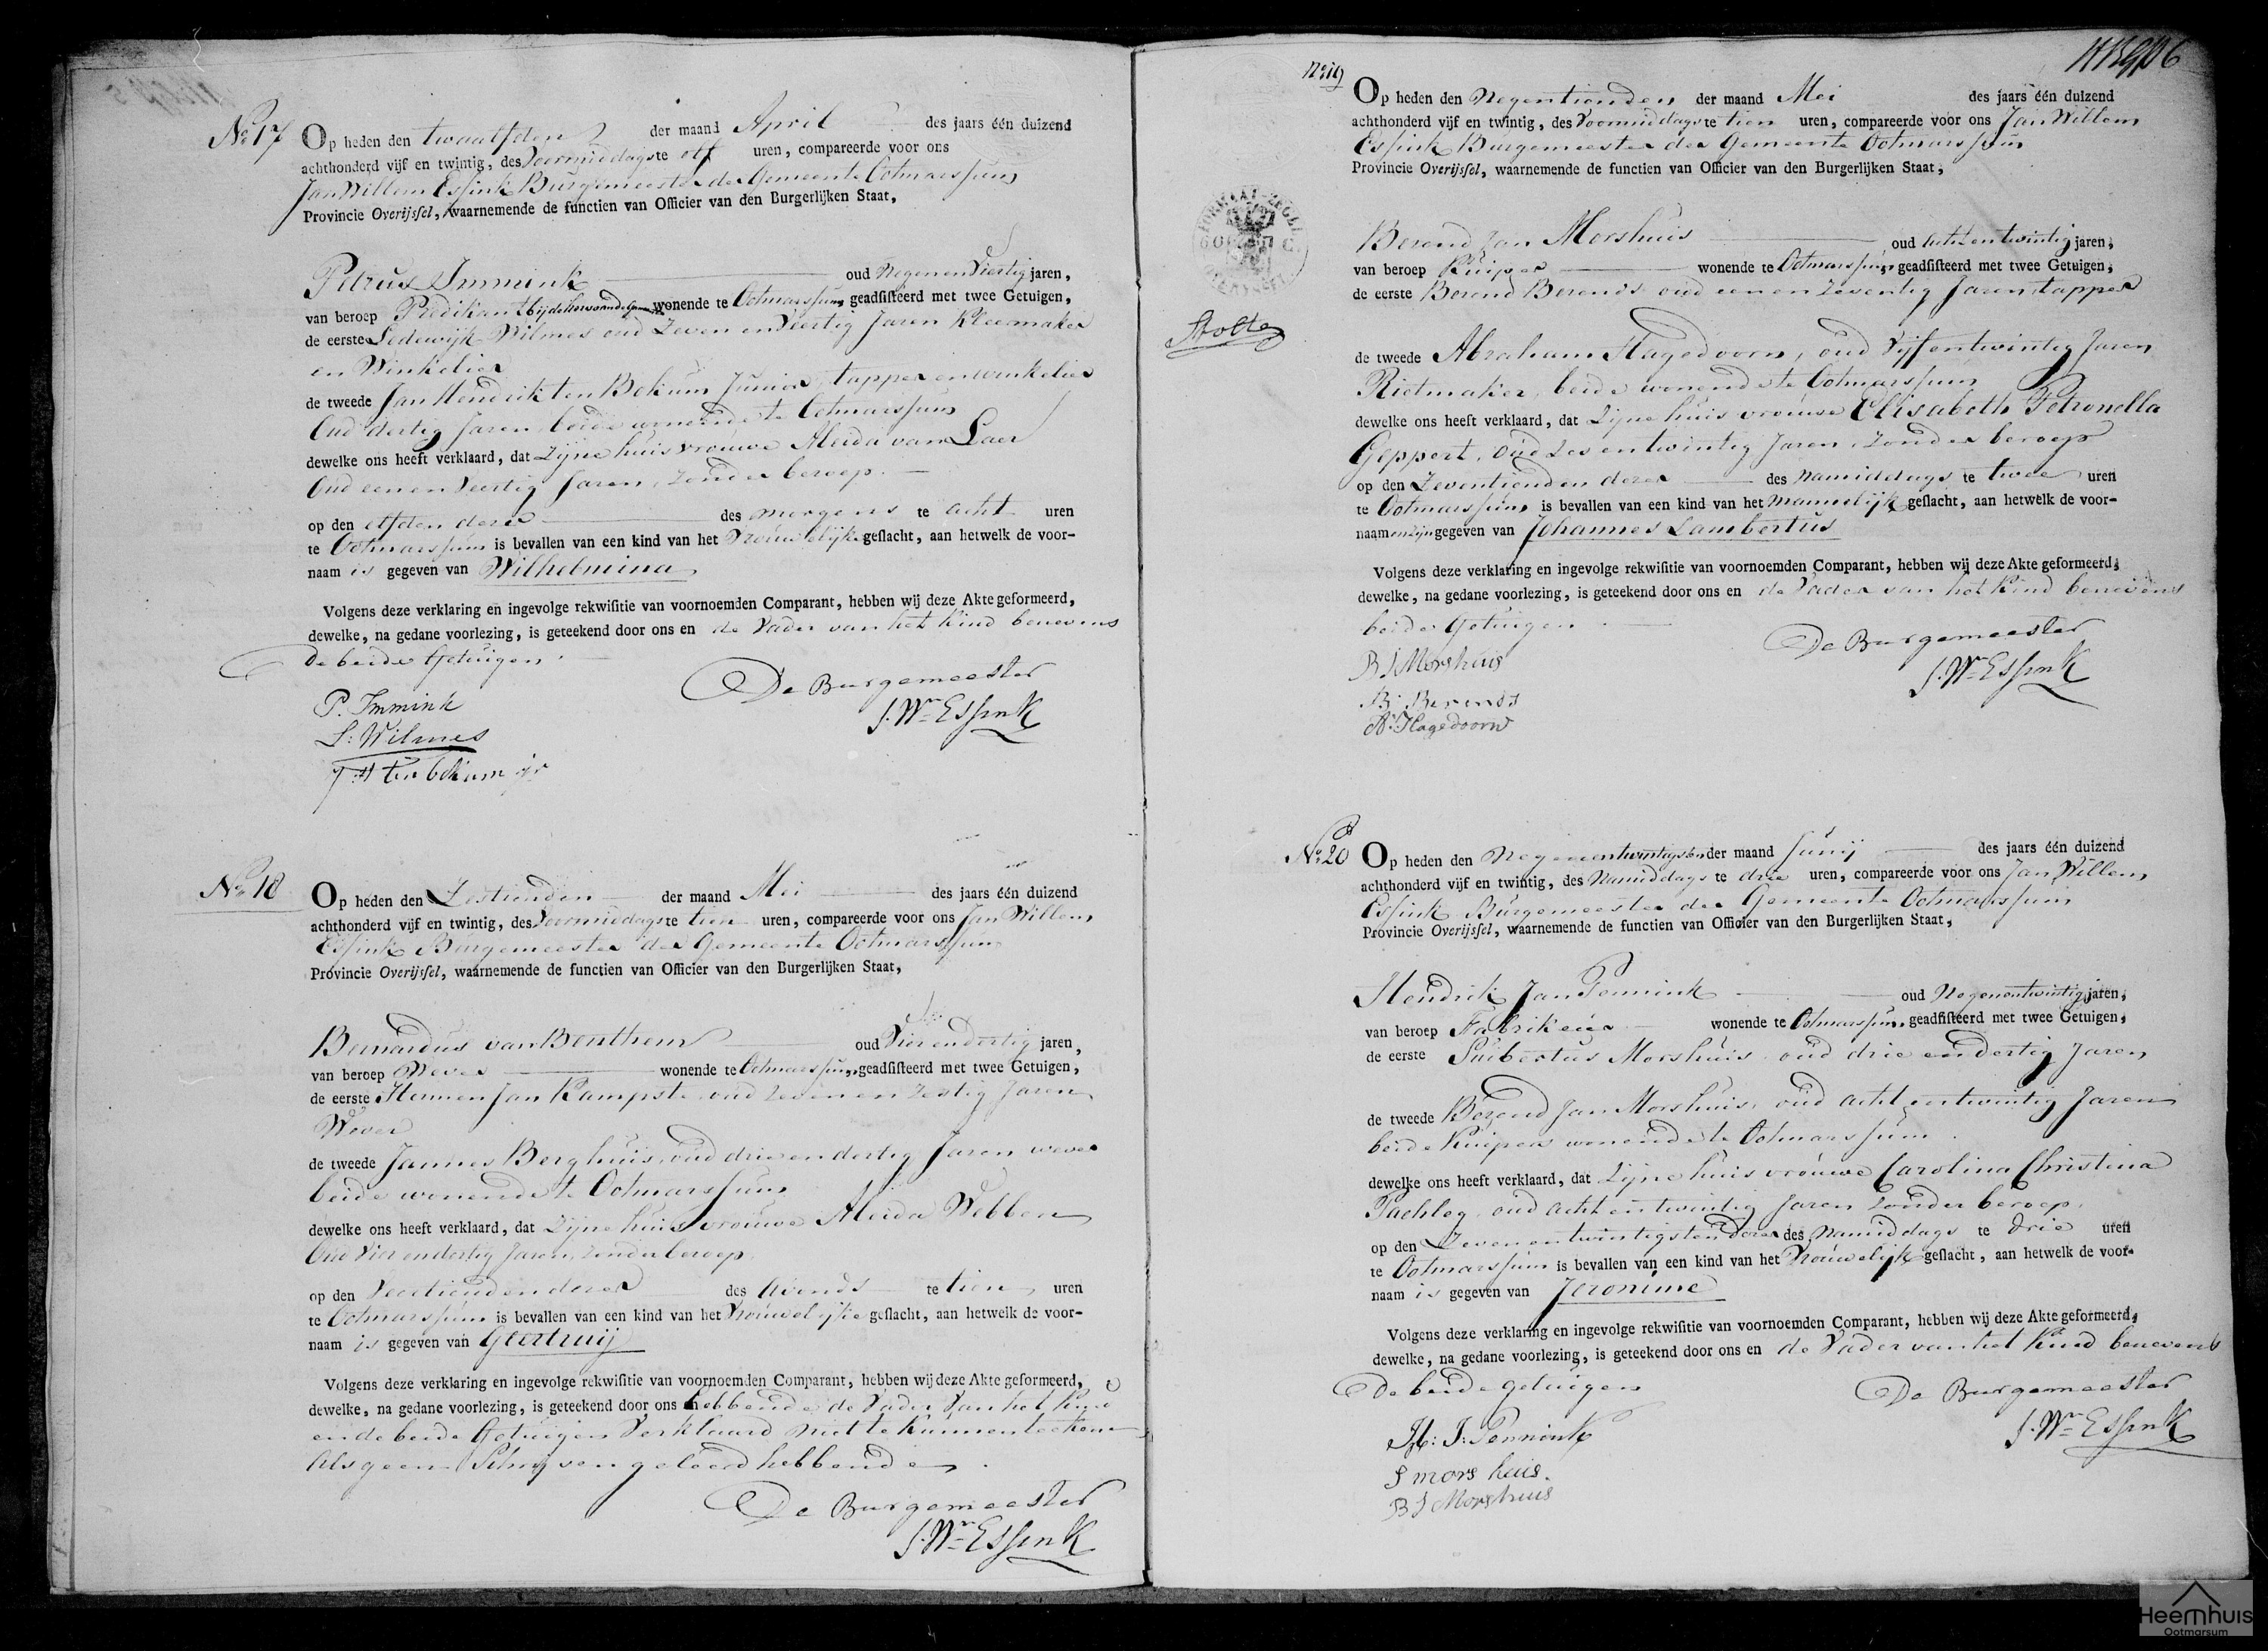 No 17 Op heden den twaalfden der maand April des jaars één duizend
achthonderd vijf en twintig, des voormiddags te elf uren, compareerde voor ons
Jan Willem Essink Burgemeester der Gemeente Ootmarssum
Provincie Overijssel, waarnemende de functien van Officier van den Burgerlijken Staat,
Petrus Immink oud Negenenveertig jaren,
van beroep Predikant bij de Hervormde Gemeente wonende te Ootmarssum geadsisteerd met twee Getuigen,
de eerste Lodewijk Wilmes oud Zeven en Veertig Jaren Kleermaker
en Winkelier
de tweede Jan Hendrik ten Bokum Junior, tapper en winkelier
Oud dertig Jaren beide wonende te Ootmarssum
dewelke ons heeft verklaard, dat Zijne huisvrouwe Aleida van Laer
Oud een en Veertig Jaren, zonder beroep.
op den elfden dezer des morgens te acht uren
te Ootmarssum is bevallen van een kind van het Vrouwelijke geslacht, aan hetwelk de voor-
naam is gegeven van Wilhelmina
Volgens deze verklaring en ingevolge rekwisitie van voornoemden Comparant, hebben wij deze Akte geformeerd,
dewelke, na gedane voorlezing, is geteekend door ons en de Vader van het Kind benevens
de beide Getuigen.
De Burgemeester
J. Wm Essink
P. Immink
L: Wilmes
J: H ten bokum jr
No 18 Op heden den Zestienden der maand Mei des jaars één duizend
achthonderd vijf en twintig, des Voormiddags te tien uren, compareerde voor ons Jan Willem
Essink Burgemeester der Gemeente Ootmarssum
Provincie Overijssel, waarnemende de functien van Officier van den Burgerlijken Staat,
Bernardus van Benthem oud Vier en dertig jaren,
van beroep Wever wonende te Ootmarssum geadsisteerd met twee Getuigen,
de eerste Hermen Jan Kampste oud zeven en zestig Jaren
Wever
de tweede Jannes Berghuis, oud drie en dertig Jaren wever
beide wonende te Ootmarssum
dewelke ons heeft verklaard, dat Zijne huisvrouwe Aleida Webben
Oud Vier en dertig Jaren, zonder beroep.
op den Veertienden dezer des Avonds te tien uren
te Ootmarssum is bevallen van een kind van het Vrouwelijke geslacht, aan hetwelk de voor-
naam is gegeven van Geertruij
Volgens deze verklaring en ingevolge rekwisitie van voornoemden Comparant, hebben wij deze Akte geformeerd,
dewelke, na gedane voorlezing, is geteekend door ons hebbende de Vader van het Kind
en de beide Getuigen Verklaard niet te Kunnen teekenen
Als geen Schrijven geleerd hebbende.
De Burgemeester
J. Wm Essink
6
No 19
Op heden den Negentienden der maand Mei des jaars één duizend
achthonderd vijf en twintig, des Voormiddags te tien uren, compareerde voor ons Jan Willem
Essink Burgemeester der Gemeente Ootmarssum
Provincie Overijssel, waarnemende de functien van Officier van den Burgerlijken Staat,
Stolte
Berend Jan Morshuis oud Achtentwintig jaren,
van beroep Kuiper wonende te Ootmarssum geadsisteerd met twee Getuigen,
de eerste Berend Berends oud een en zeventig Jaren tapper
de tweede Abraham Hagedoorn, oud Vijfentwintig Jaren
Rietmaker, beide wonende te Ootmarssum
dewelke ons heeft verklaard, dat Zijne huisvrouwe Elisabeth Petronella
Geppert, oud zes en twintig Jaren, zonder beroep
op den Zeventienden dezer des Namiddags te twee uren
te Ootmarssum is bevallen van een kind van het Mannelijk geslacht, aan hetwelk de voor-
naam en zijn gegeven van Johannes Lambertus
Volgens deze verklaring en ingevolge rekwisitie van voornoemden Comparant, hebben wij deze Akte geformeerd,
dewelke, na gedane voorlezing, is geteekend door ons en de Vader van het Kind benevens
beide Getuigen
De Burgemeester
J. Wm Essink
B J Morshuis
B: Berends
A: Hagedoorn
No 20 Op heden den Negenentwintigsten der maand Junij des jaars één duizend
achthonderd vijf en twintig, des Namiddags te drie uren, compareerde voor ons Jan Willem
Essink Burgemeester der Gemeente Ootmarssum
Provincie Overijssel, waarnemende de functien van Officier van den Burgerlijken Staat,
Hendrik Jan Pennink oud Negenentwintig jaren,
van beroep Fabrikeur wonende te Ootmarssum geadsisteerd met twee Getuigen,
de eerste Suibertus Morshuis oud drie en dertig Jaren
de tweede Berend Jan Morshuis, oud acht en twintig Jaren
beide Kuipers wonende te Ootmarssum
dewelke ons heeft verklaard, dat Zijne huisvrouwe Carolina Christina
oud acht en twintig Jaren zonder beroep.
op den Zevenentwintigsten dezer des Namiddags te drie uren
te Ootmarssum is bevallen van een kind van het Vrouwelijk geslacht, aan hetwelk de voor-
naam is gegeven van Jeronime
Volgens deze verklaring en ingevolge rekwisitie van voornoemden Comparant, hebben wij deze Akte geformeerd,
dewelke, na gedane voorlezing, is geteekend door ons en de Vader van het Kind benevens
de beide getuigen
De Burgemeester
J. Wm Essink
H: J: Pennink
S mors huis.
B J Morshuis
Heemhuis
Ootmarsum